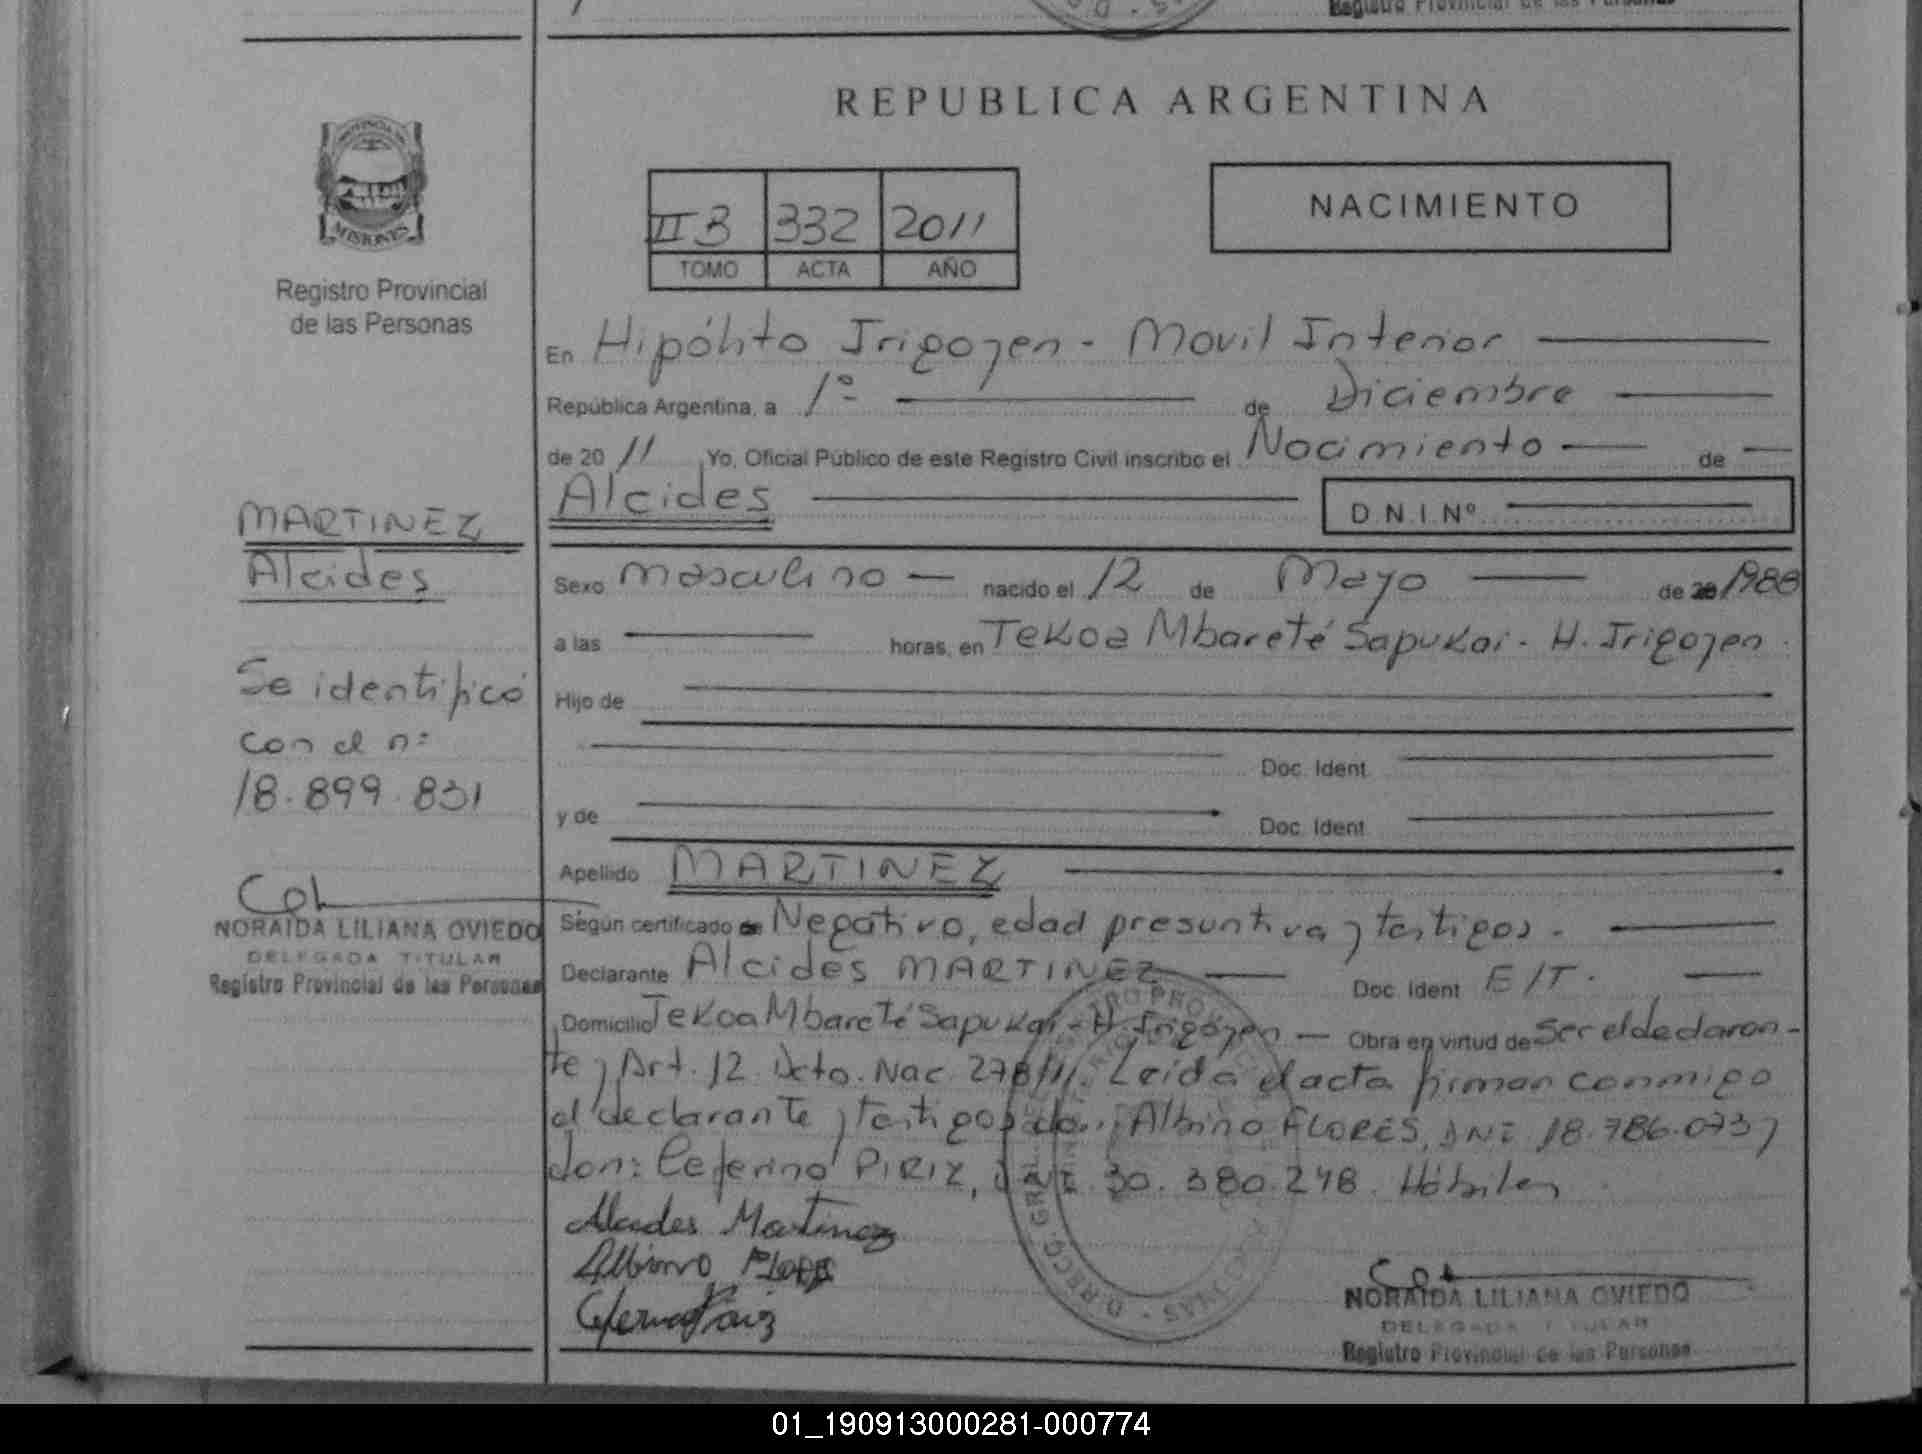 Registro Provincial de las Personas
REPUBLICA ARGENTINA
PROVINCIA DE
MISIONES
Registro Provincial
de las Personas
II 3 332 2011
TOMO ACTA AÑO
NACIMIENTO
En Hipólito Irigoyen - Movil Interior
República Argentina, a 1º de Diciembre
de 20 11 Yo, Oficial Público de este Registro Civil inscribo el Nacimiento de
Alcides
D.N.I.Nº
MARTINEZ
Alcides
Sexo masculino nacido el 12 de Mayo de 20 1988
a las horas, en Tekoa Mbareté Sapukai - H. Irigoyen.
Se identificó
con el nº
18.899.831
Hijo de
Doc. Ident.
y de Doc. Ident.
Apellido MARTINEZ
NORAIDA LILIANA OVIEDO
DELEGADA TITULAR
Registro Provincial de las Personas
Según certificado de Negativo, edad presuntiva y testigos.
Declarante Alcides MARTINEZ Doc. Ident E/T.
Domicilio Tekoa Mbareté Sapukai - H. Irigoyen Obra en virtud de Ser el declaran-
te y Art. 12 Dcto. Nac. 278/11. Leída el acta firman conmigo
el declarante y testigos don: Albino FLORES, DNI 18.786.073 y
don: Ceferino PIRIZ, DNI 30.380.248. Hábiles
Alcides Martinez
Albino Flores
NORAIDA LILIANA OVIEDO
DELEGADA TITULAR
Registro Provincial de las Personas
01_190913000281-000774